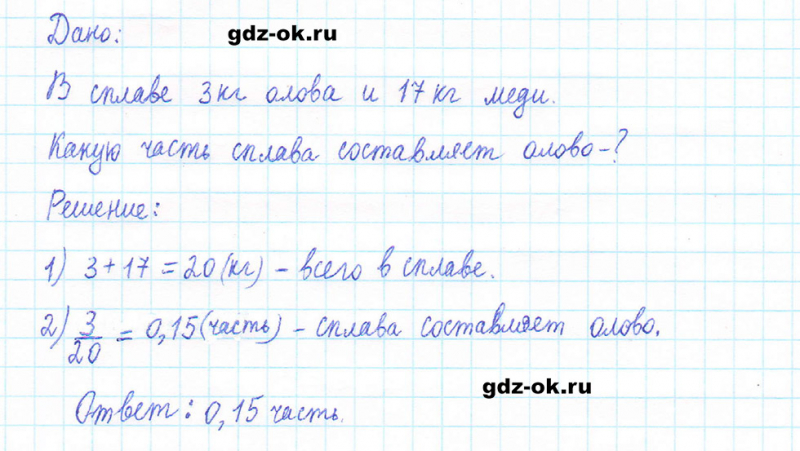 Дано: gdz-ok.ru
В сплаве 3 кг олова и 17 кг меди.
Какую часть сплава составляет олово-?
Решение:
1) 3 + 17 = 20 (кг) - всего в сплаве.
2) 3/20 = 0,15 (часть) - сплава составляет олово.
gdz-ok.ru
Ответ: 0,15 часть.